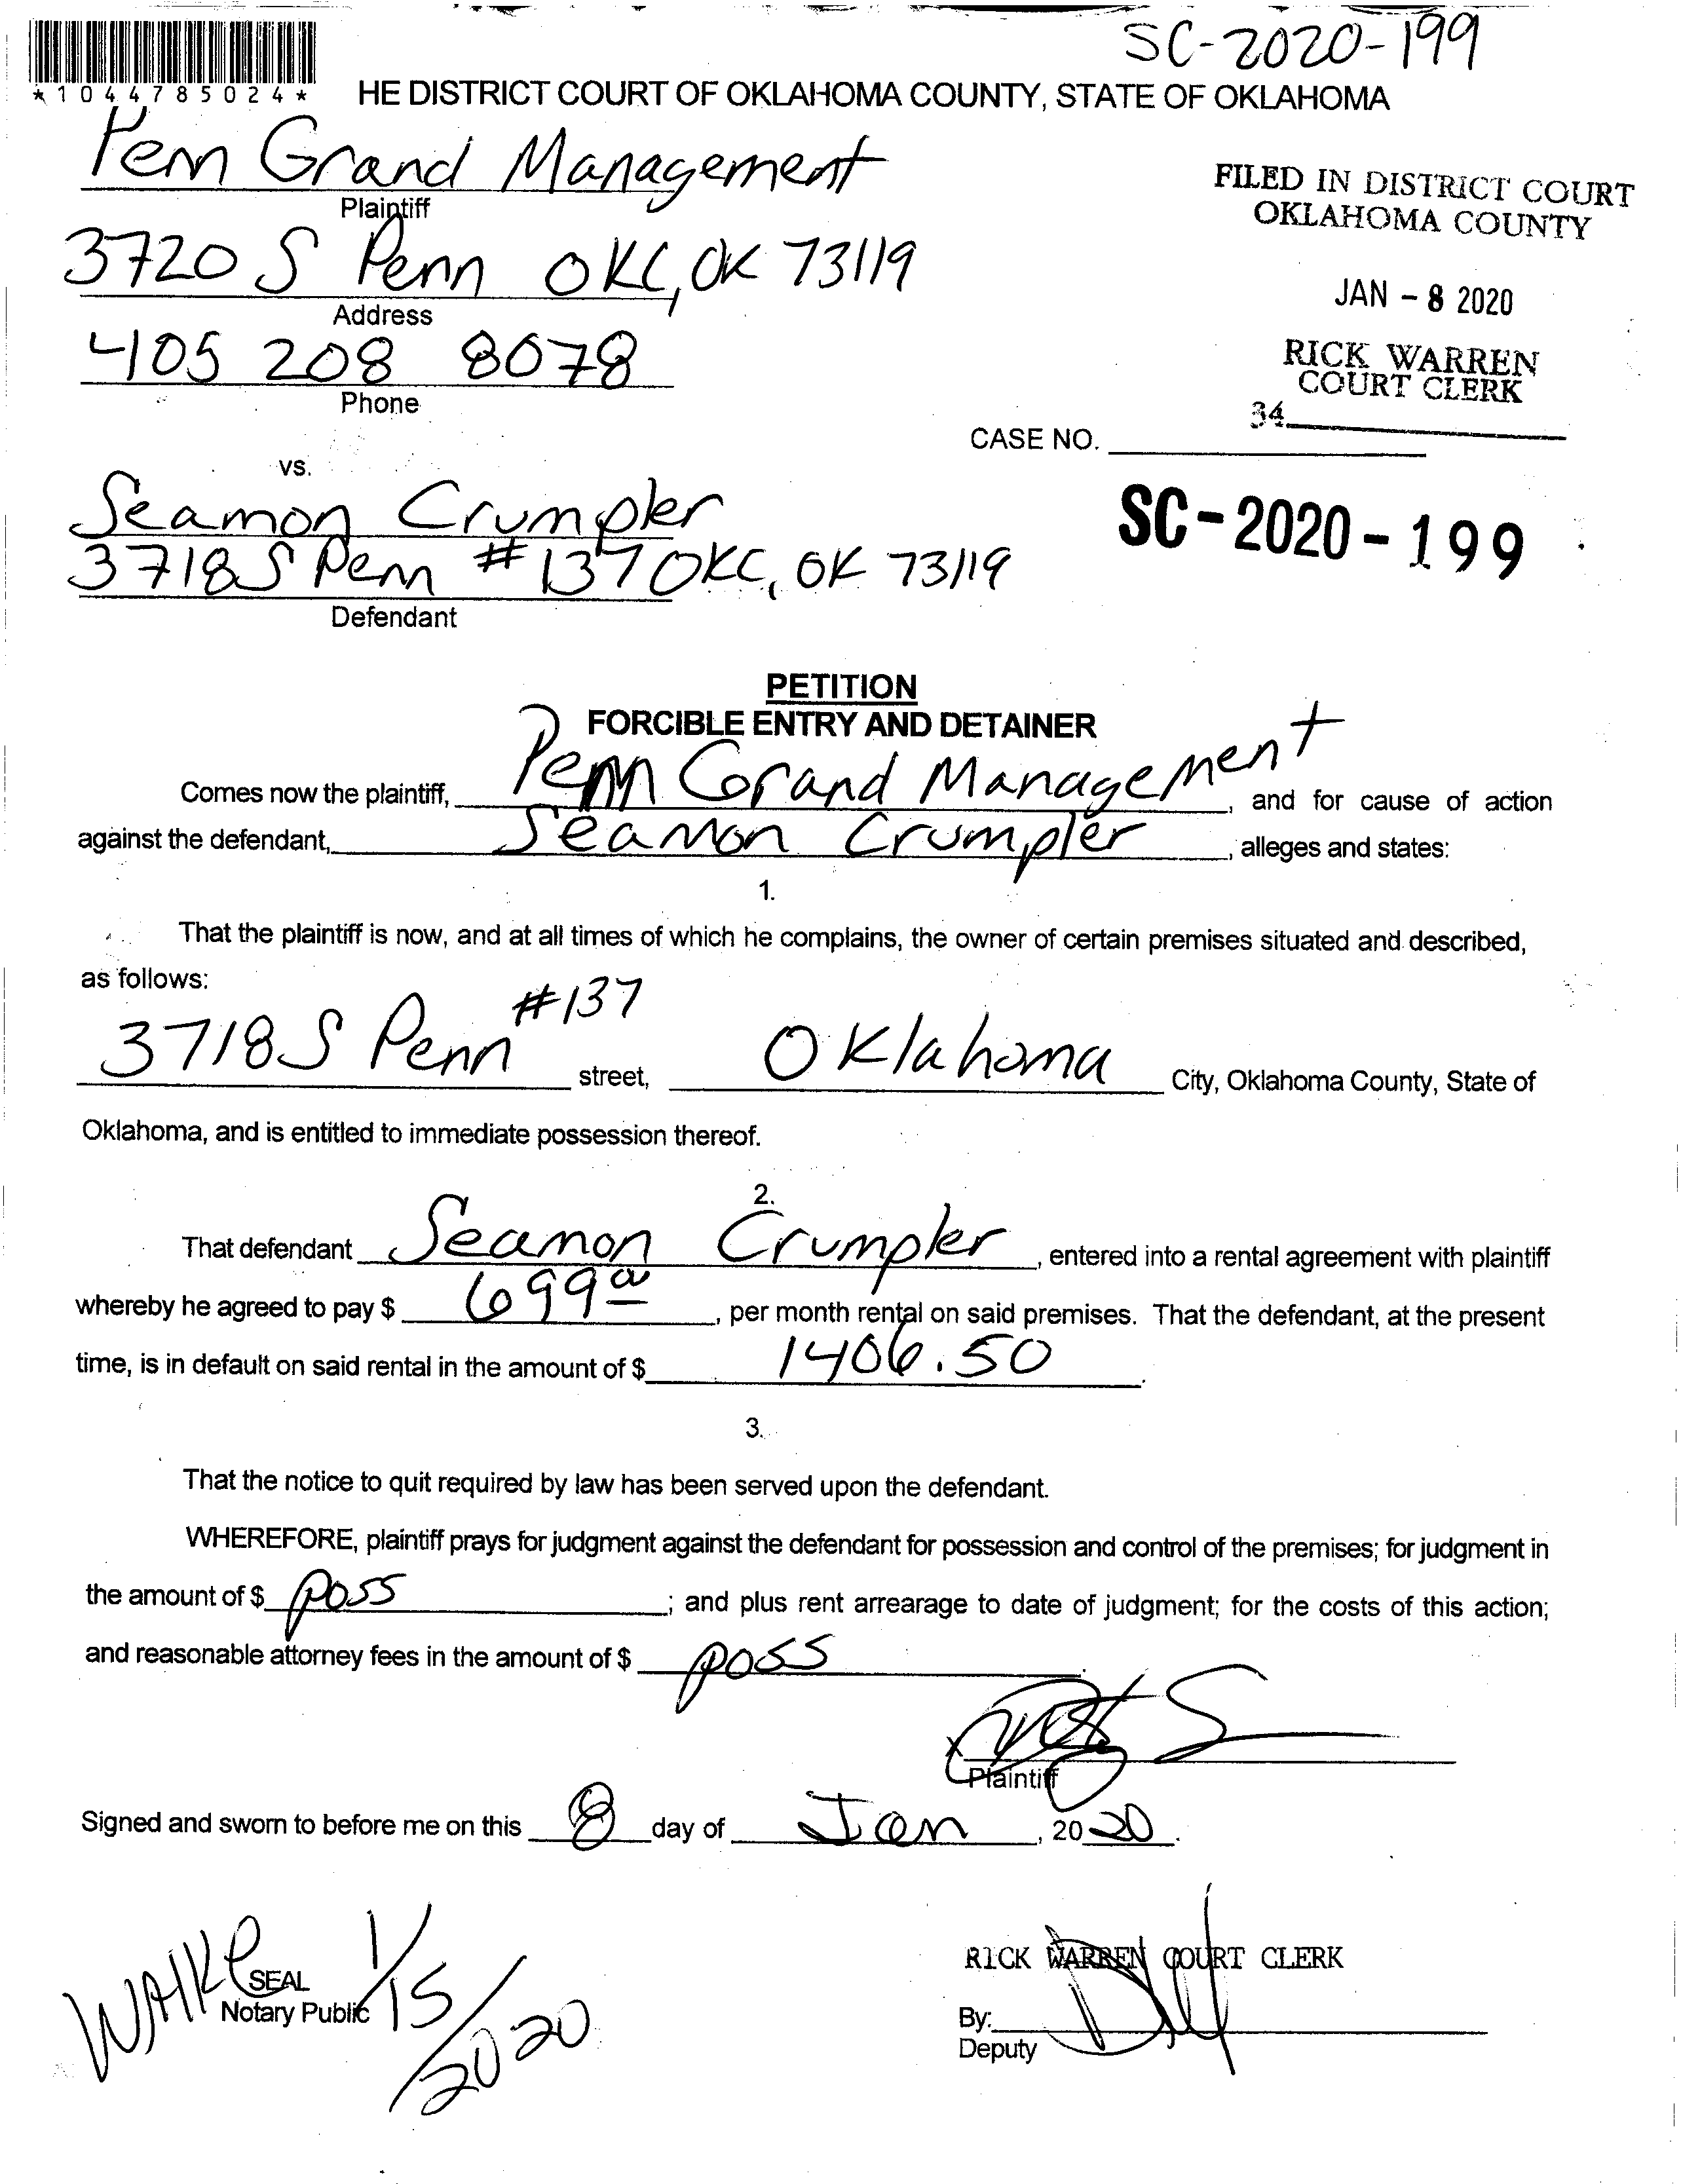 SC-2020-199
*1044785024*
HE DISTRICT COURT OF OKLAHOMA COUNTY, STATE OF OKLAHOMA
Penn Grand Management
Plaintiff
FILED IN DISTRICT COURT
OKLAHOMA COUNTY
3720 S Penn OKC, OK 73119
Address
JAN - 8 2020
405 208 8078
Phone
RICK WARREN
COURT CLERK
34
CASE NO.
vs.
Seamon Crumpler
3718 S Penn #137 OKC, OK 73119
Defendant
SC-2020-199
PETITION
FORCIBLE ENTRY AND DETAINER
Comes now the plaintiff, Penn Grand Management, and for cause of action
against the defendant, Seamon Crumpler, alleges and states:
1.
That the plaintiff is now, and at all times of which he complains, the owner of certain premises situated and described,
as follows:
3718 S Penn #137 street, Oklahoma City, Oklahoma County, State of
Oklahoma, and is entitled to immediate possession thereof.
2.
That defendant Seamon Crumpler, entered into a rental agreement with plaintiff
whereby he agreed to pay $ 699 00, per month rental on said premises. That the defendant, at the present
time, is in default on said rental in the amount of $ 1406.50.
3.
That the notice to quit required by law has been served upon the defendant.
WHEREFORE, plaintiff prays for judgment against the defendant for possession and control of the premises; for judgment in
the amount of $ poss; and plus rent arrearage to date of judgment; for the costs of this action;
and reasonable attorney fees in the amount of $ poss.
X
Plaintiff
Signed and sworn to before me on this 8 day of Jan, 2020.
SEAL
Notary Public
1/15/2020
RICK WARREN COURT CLERK
By:
Deputy